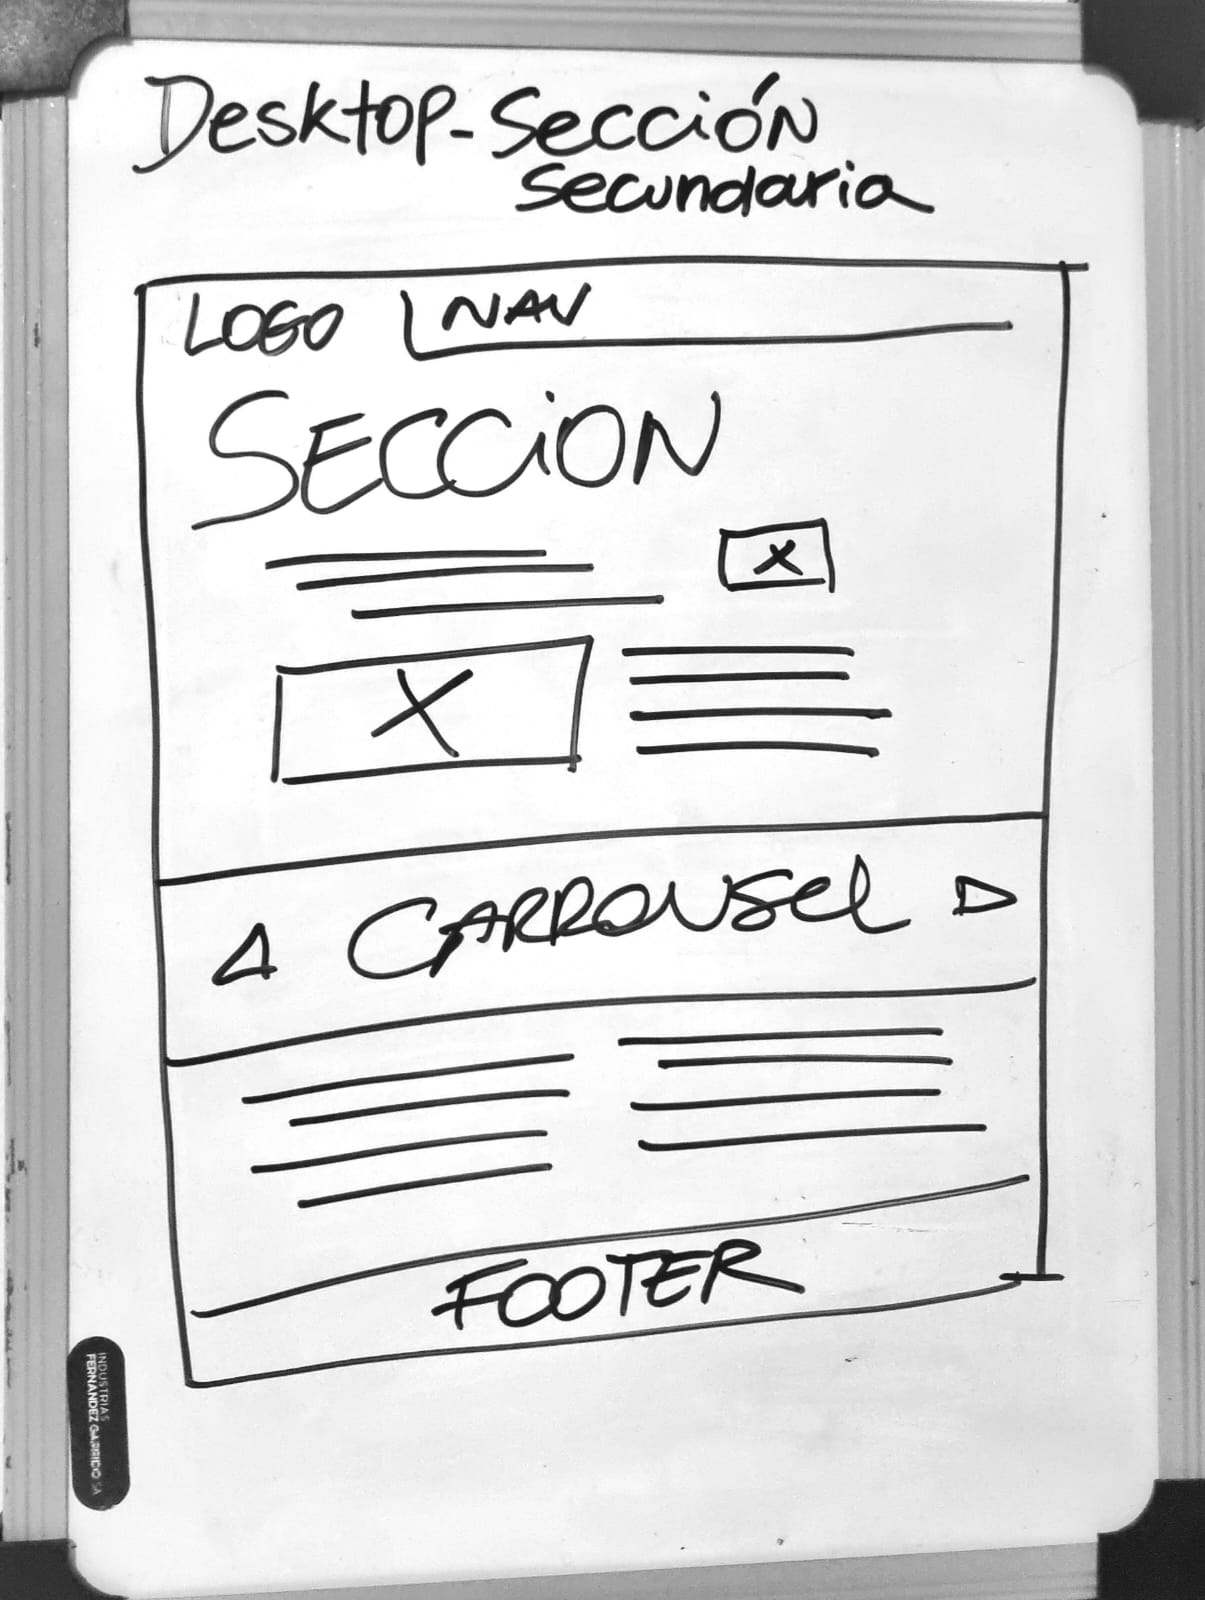 Desktop-Sección
secundaria
LOGO NAV
SECCiON
X
X
CARROUSel
FOOTER
INDUSTRIAS
FERNANDEZ GARRIDO SA